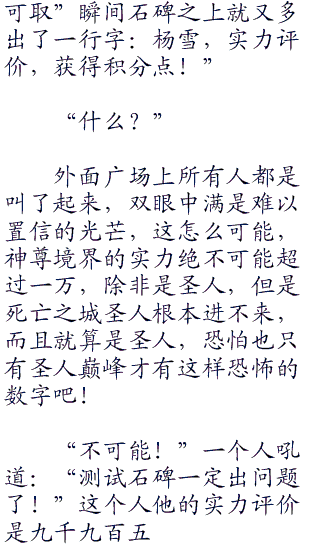 可取”瞬间石碑之上就又多
出了一行字：杨雪，实力评
价，获得积分点！”
“什么？”
外面广场上所有人都是
叫了起来，双眼中满是难以
置信的光芒，这怎么可能，
神尊境界的实力绝不可能超
过一万，除非是圣人，但是
死亡之城圣人根本进不来，
而且就算是圣人，恐怕也只
有圣人巅峰才有这样恐怖的
数字吧！
“不可能！”一个人吼
道：“测试石碑一定出问题
了！”这个人他的实力评价
是九千九百五